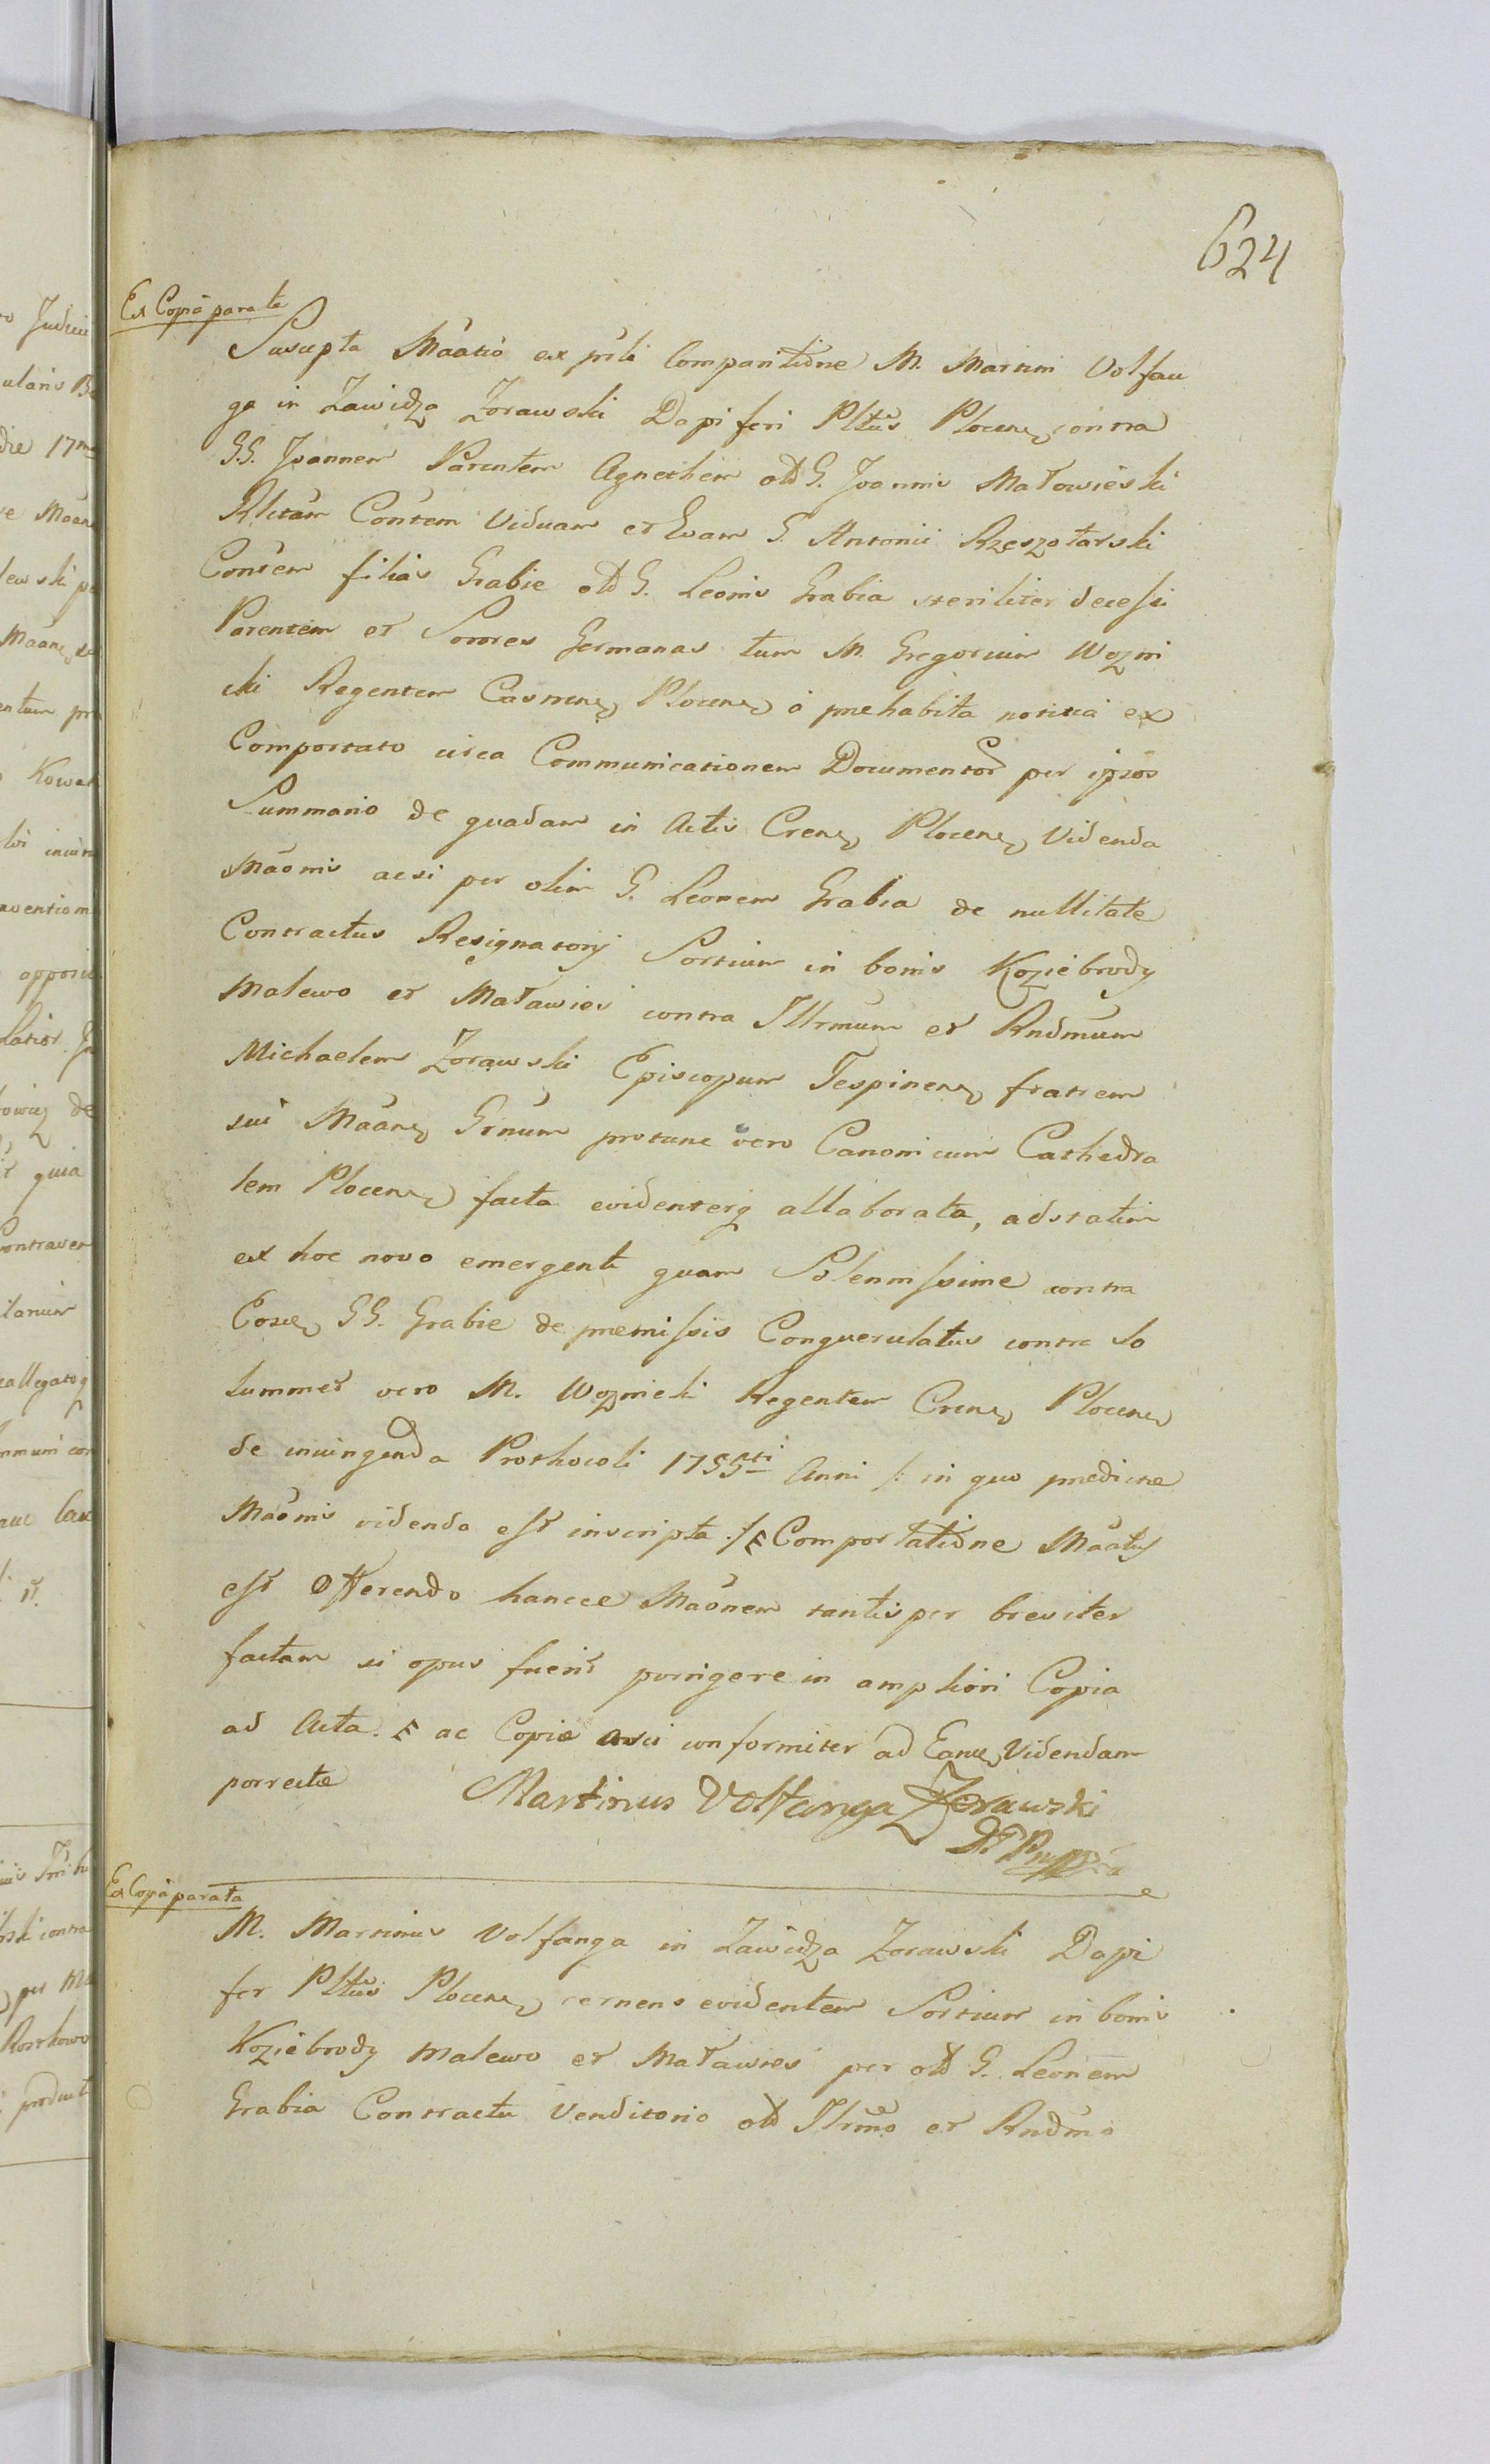 624
Ex Copia parata
Suscepta Mãatio ex prĩli Comparitiõne M. Martini Volfan
ga in Zawidza Zorawski Dapiferi Pltũs Plocens, contra
G.G. Joannem Parentem Agnethem olB G. Joannis Małowieski
Rlictãm Contẽm Viduam et Evam G. Antonii Rzeszotarski
Contẽm filias Grabie olB G. Leonis Grabia steriliter decessi
Parentem et Sorores Germanas tum M. Gregorium Wozni
cki Regentem Castrens, Plocens, o prehabita notitia ex
Comportato circa Communicationem Documentor per ipsos
Summario de quadam in Actis Crens, Plocens, Videnda
Mãonis acsi per olim G. Leonem Grabia de nullitate
Contractus Resignatorij Sortium in bonis Koziebrody
Malewo et Maławies contra Illrmũm et Rndmũm
Michaelem Zorawski Episcopum Tespinens, fratrem
sui Mãans, Grnũm protunc vero Canonicum Cathedra
lem Plocens, facta evidenterq allaborata, adstatim
ex hoc novo emergenti quam Solennissime contra
Eosce, GG. Grabie de premissis Conquerulatus contra so
lummet vero M. Woznicki Regentem Crens, Plocens,
de iniungenda Prothocoli 1755ti Anni /: in quo predictae
Mãonis videnda est inscripta :/ Comportatiõne Mãatus
est Offerendo hancce Mãonem tantisper breviter
factam si opus fuerit porrigere in ampliori Copia
ad Acta. ac Copiae conformiter ad Eance, Videndam
porrectae Martinus Volfanga Zorawski
Ex Copia parata
M. Martinus Volfanga in Zawidza Zorawski Dapi
fer Pltũs Plocens, cernens evidentem Sortium in bonis
Koziebrody Malewo et Maławies per olB G. Leonem
Grabia Contractu Venditorio olB Illrmõ et Rndmõ